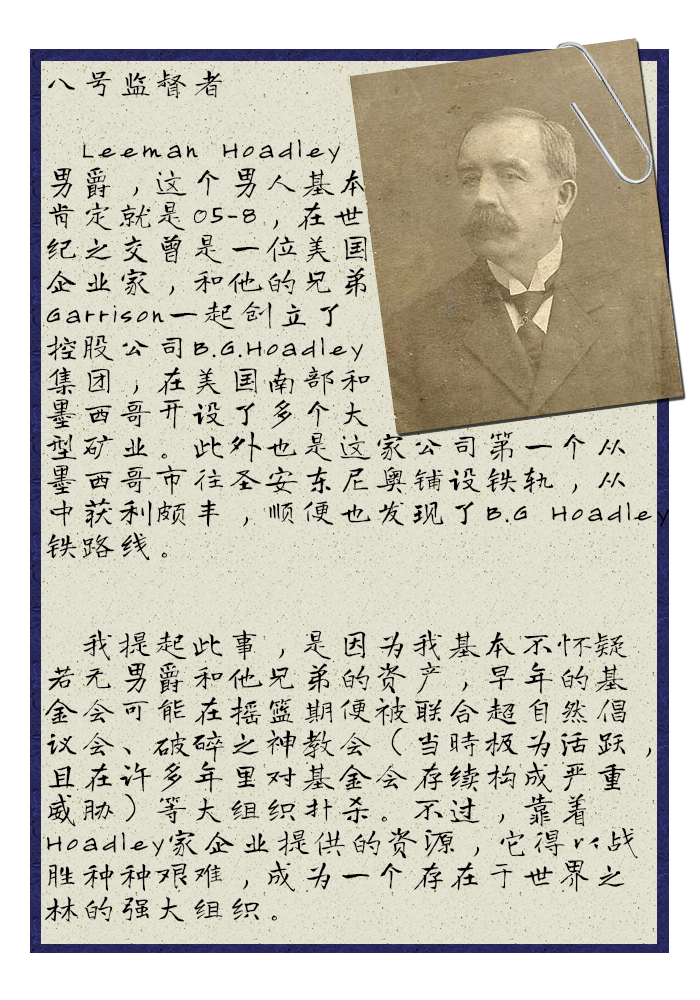 八号监督者
Leeman Hoadley
男爵，这个男人基本
肯定就是05-8，在世
纪之交曾是一位美国
企业家，和他的兄弟
Garrison一起创立了
控股公司B.G.Hoadley
集团，在美国南部和
墨西哥开设了多个大
型矿业。此外也是这家公司第一个从
墨西哥市往圣安东尼奥铺设铁轨，从
中获利颇丰，顺便也发现了B.G Hoadley
铁路线。
我提起此事，是因为我基本不怀疑
若无男爵和他兄弟的资产，早年的基
金会可能在摇篮期便被联合超自然倡
议会、破碎之神教会（当時极为活跃，
且在许多年里对基金会存续构成严重
威胁）等大组织扑杀。不过，靠着
Hoadley家企业提供的资源，它得以战
胜种种艰难，成为一个存在于世界之
林的强大组织。